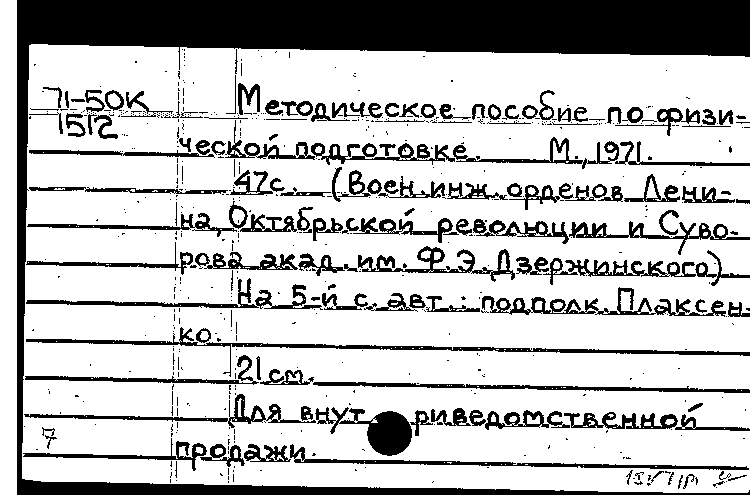 71-50К Методическое пособие по физи-
1512
ческой подготовке. М., 1971.
47с. (Воен.инж.орденов Лени-
на, Октябрьской революции и Суво-
рова акад.им.Ф.Э.Дзержинского)
На 5-й с. авт.: подполк.Плаксен-
ко.
21см.
Для внутриведомственной
7
продажи.